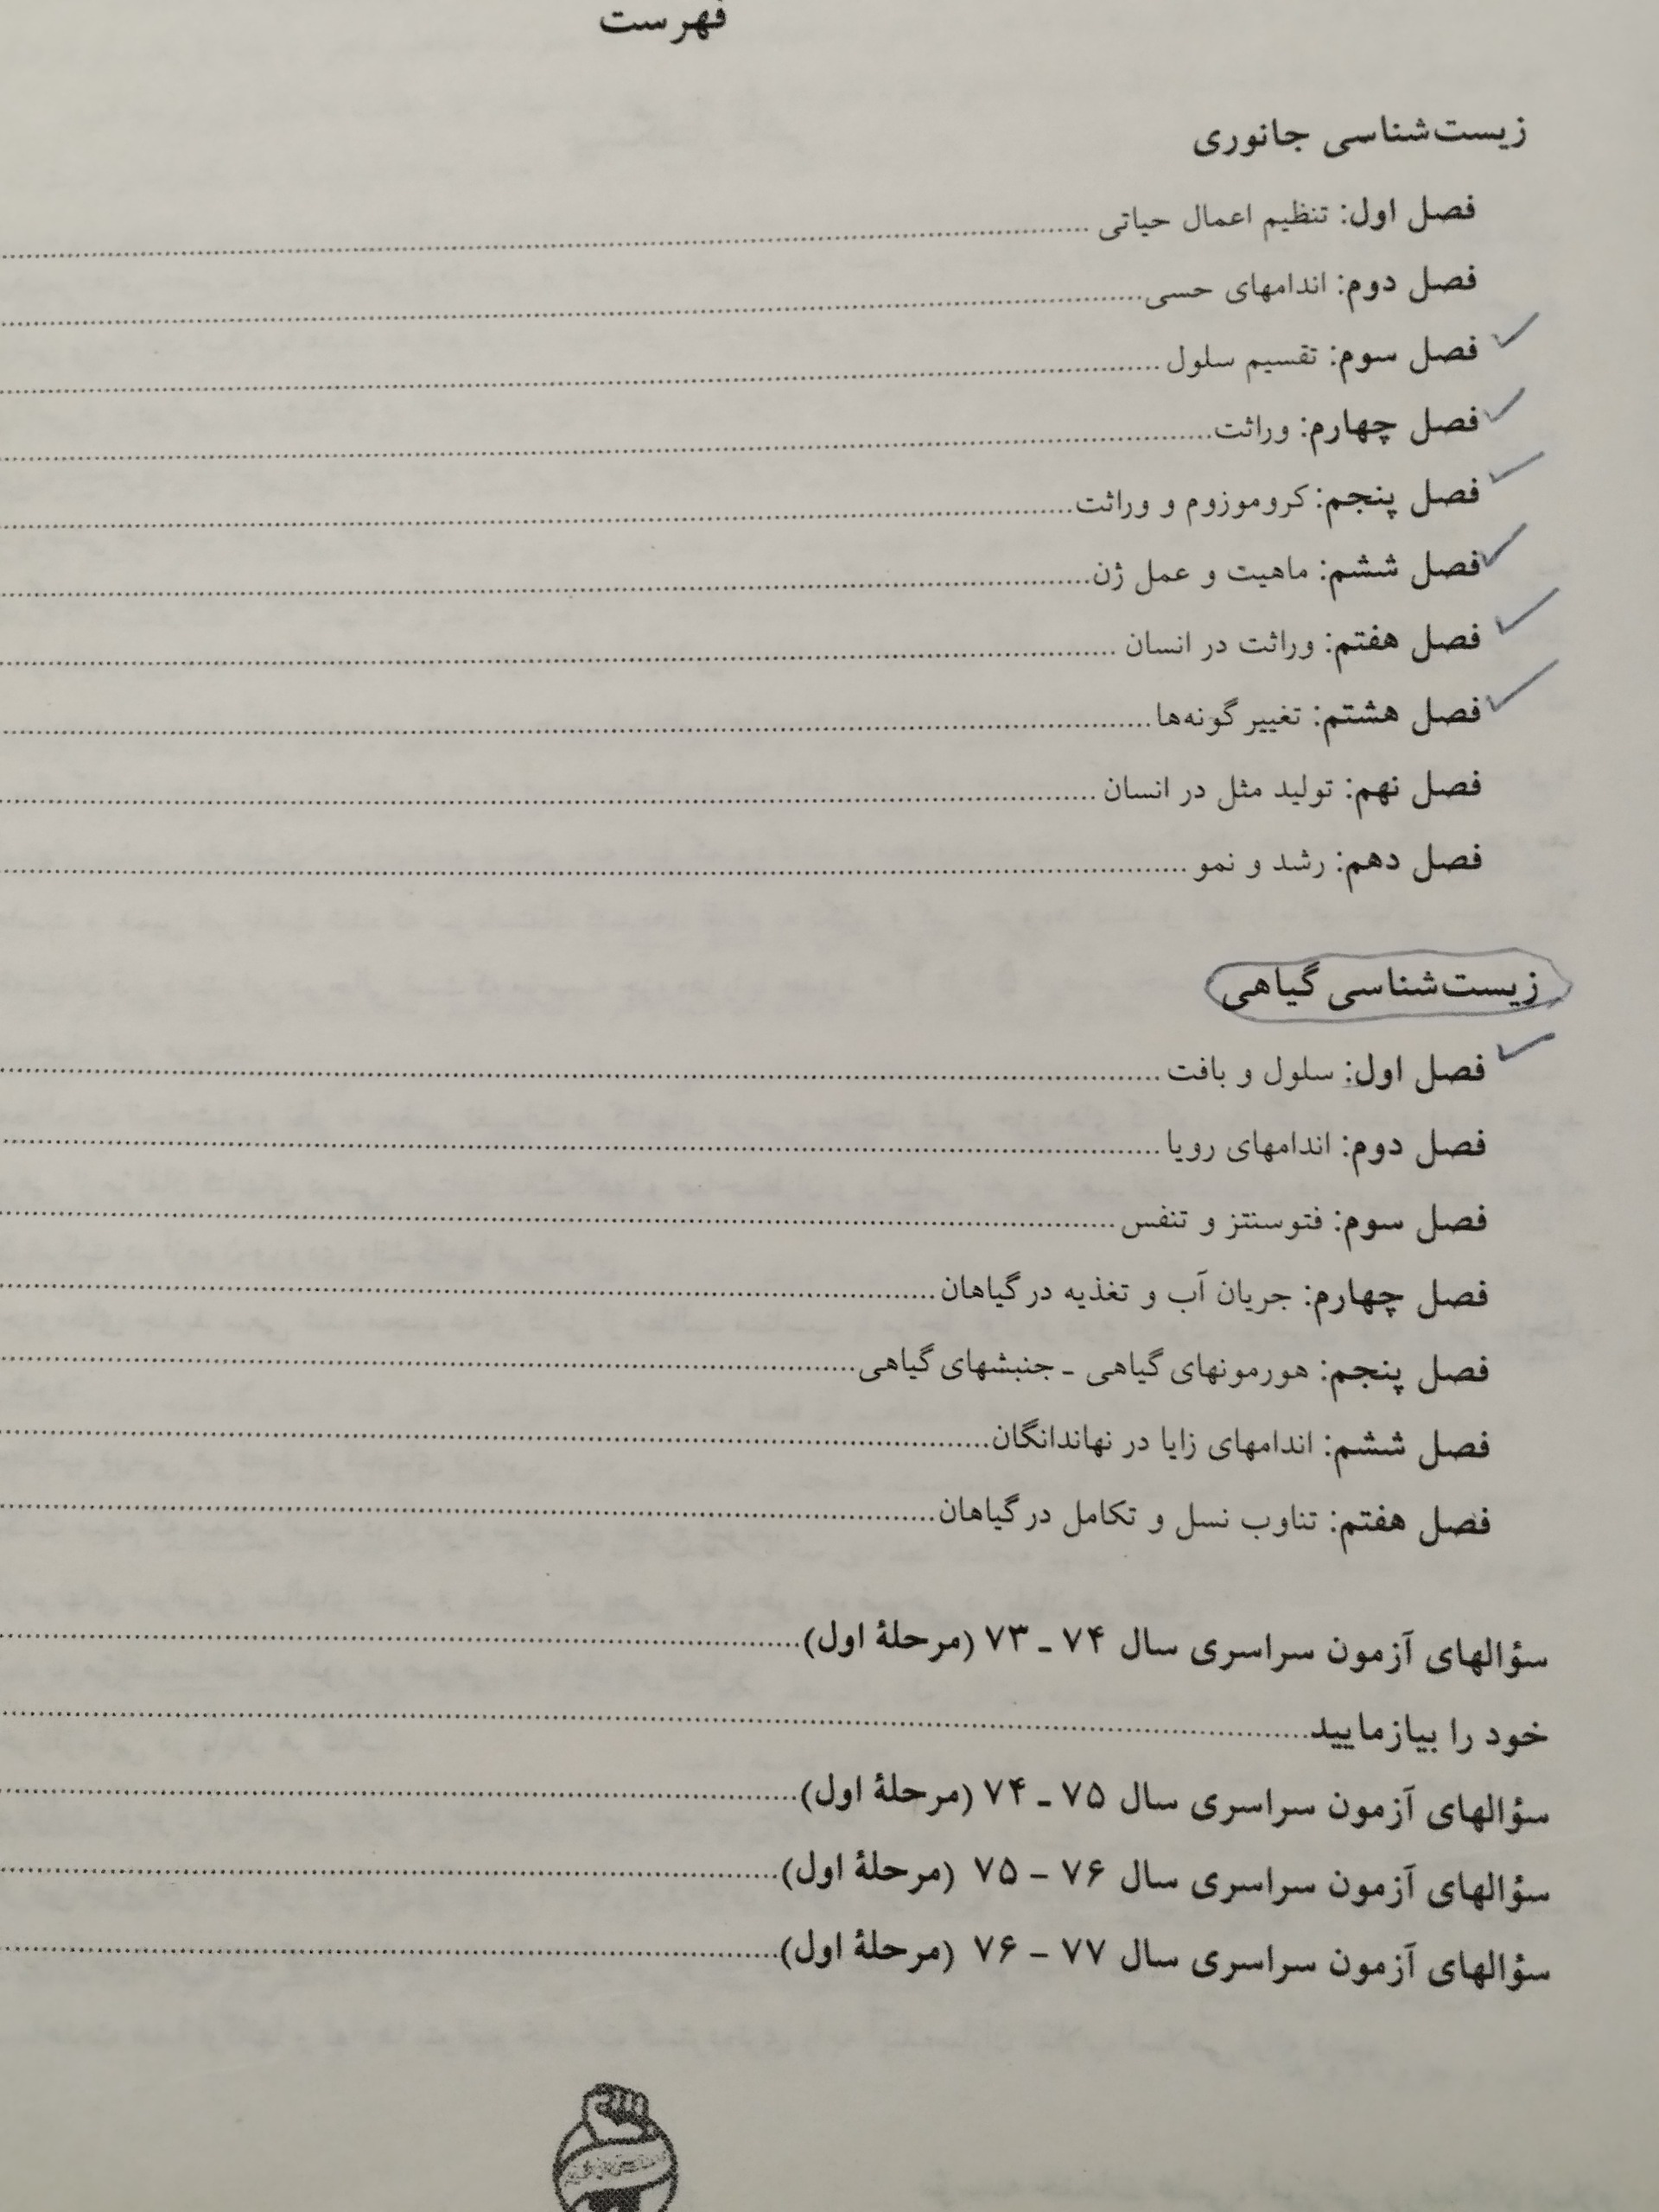 فهرست
زیست‌شناسی جانوری
فصل اول: تنظیم اعمال حیاتی
فصل دوم: اندامهای حسی
فصل سوم: تقسیم سلول
فصل چهارم: وراثت
فصل پنجم: کروموزوم و وراثت
فصل ششم: ماهیت و عمل ژن
فصل هفتم: وراثت در انسان
فصل هشتم: تغییر گونه‌ها
فصل نهم: تولید مثل در انسان
فصل دهم: رشد و نمو
زیست‌شناسی گیاهی
فصل اول: سلول و بافت
فصل دوم: اندامهای رویا
فصل سوم: فتوسنتز و تنفس
فصل چهارم: جریان آب و تغذیه در گیاهان
فصل پنجم: هورمونهای گیاهی ـ جنبشهای گیاهی
فصل ششم: اندامهای زایا در نهاندانگان
فصل هفتم: تناوب نسل و تکامل در گیاهان
سؤالهای آزمون سراسری سال ۷۴ ـ ۷۳ (مرحلۀ اول)
خود را بیازمایید
سؤالهای آزمون سراسری سال ۷۵ ـ ۷۴ (مرحلۀ اول)
سؤالهای آزمون سراسری سال ۷۶ – ۷۵ (مرحلۀ اول)
سؤالهای آزمون سراسری سال ۷۷ – ۷۶ (مرحلۀ اول)